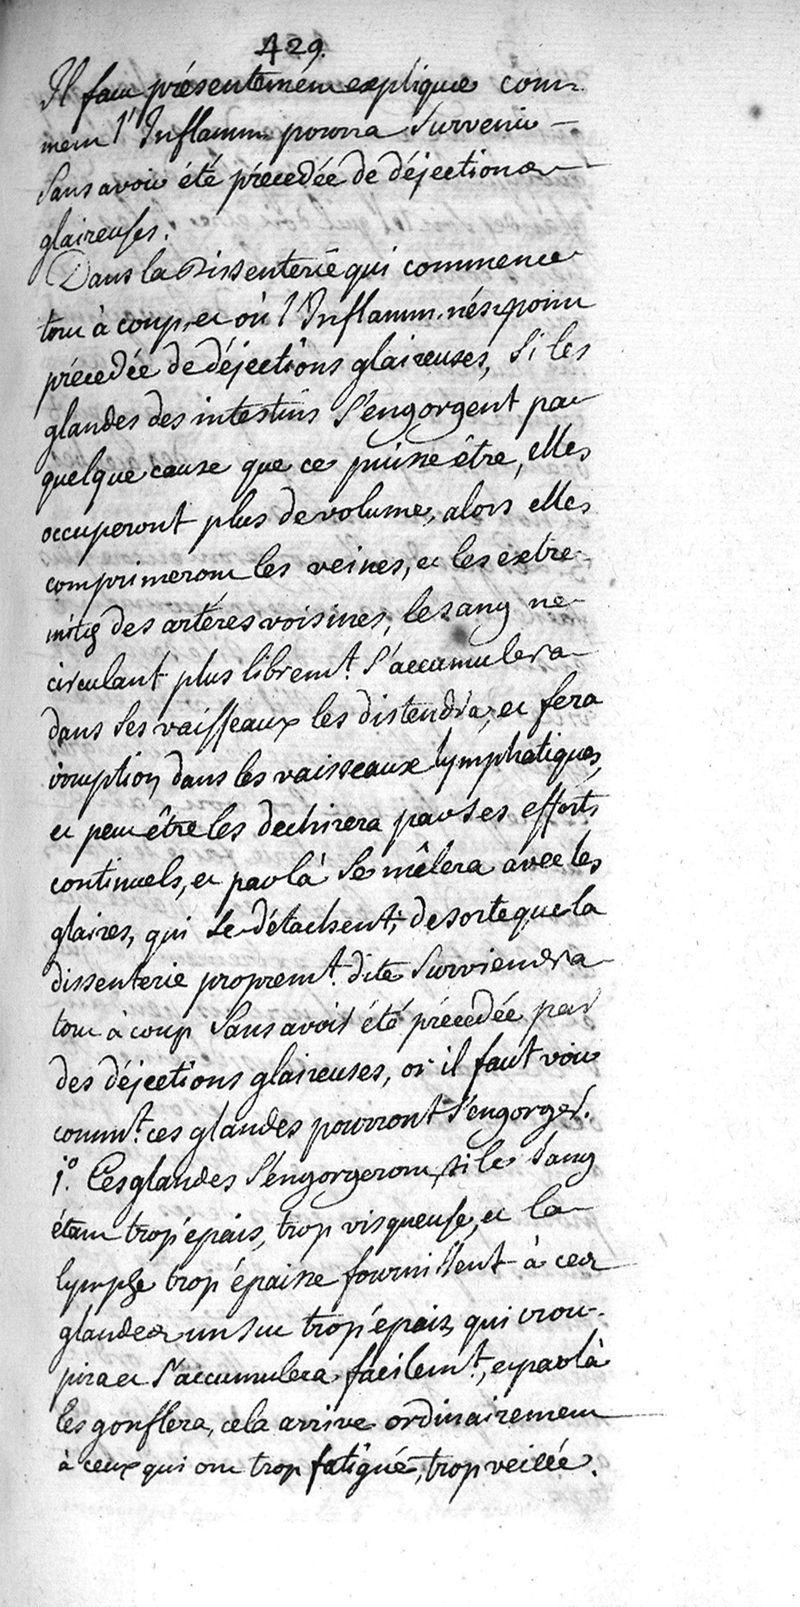 429.
Il faut présentement expliquer com-
ment l'Inflamm. pourra Survenir -
Sans avoir été précedée de déjections
glaireuses.
Dans la Dissenterie qui commence
tout à coup, et où l'Inflamm. n'est point
précedée de déjections glaireuses, Si les
glandes des intestins S'engorgent par
quelque cause que ce puisse être, elles
occuperont plus de volume, alors elles
comprimeront les veines, et les extre-
mités des artères voisines, le sang ne
circulant plus librem.t S'accumulera
dans Ses vaisseaux les distendra, et fera
irruption dans les vaisseaux lymphatiques,
et peut être les dechirera par Ses efforts
continuels, et par là Se mêlera avec les
glaires, qui Se détachent; de sorte que la
dissenterie proprem.t dite Surviendra
tout à coup Sans avoir été précedée par
des déjections glaireuses, or il faut voir
comm.t ces glandes pourront S'engorger.
1.° Ces glandes S'engorgeront, si le Sang
étant trop épais, trop visqueuse, et la
lymphe trop épaisse fournissent à ces
glandes un Suc trop épais, qui crou-
pira et S'accumulera facilem.t, et par là
les gonflera, cela arrive ordinairement
à ceux qui ont trop fatigué, trop veillée.